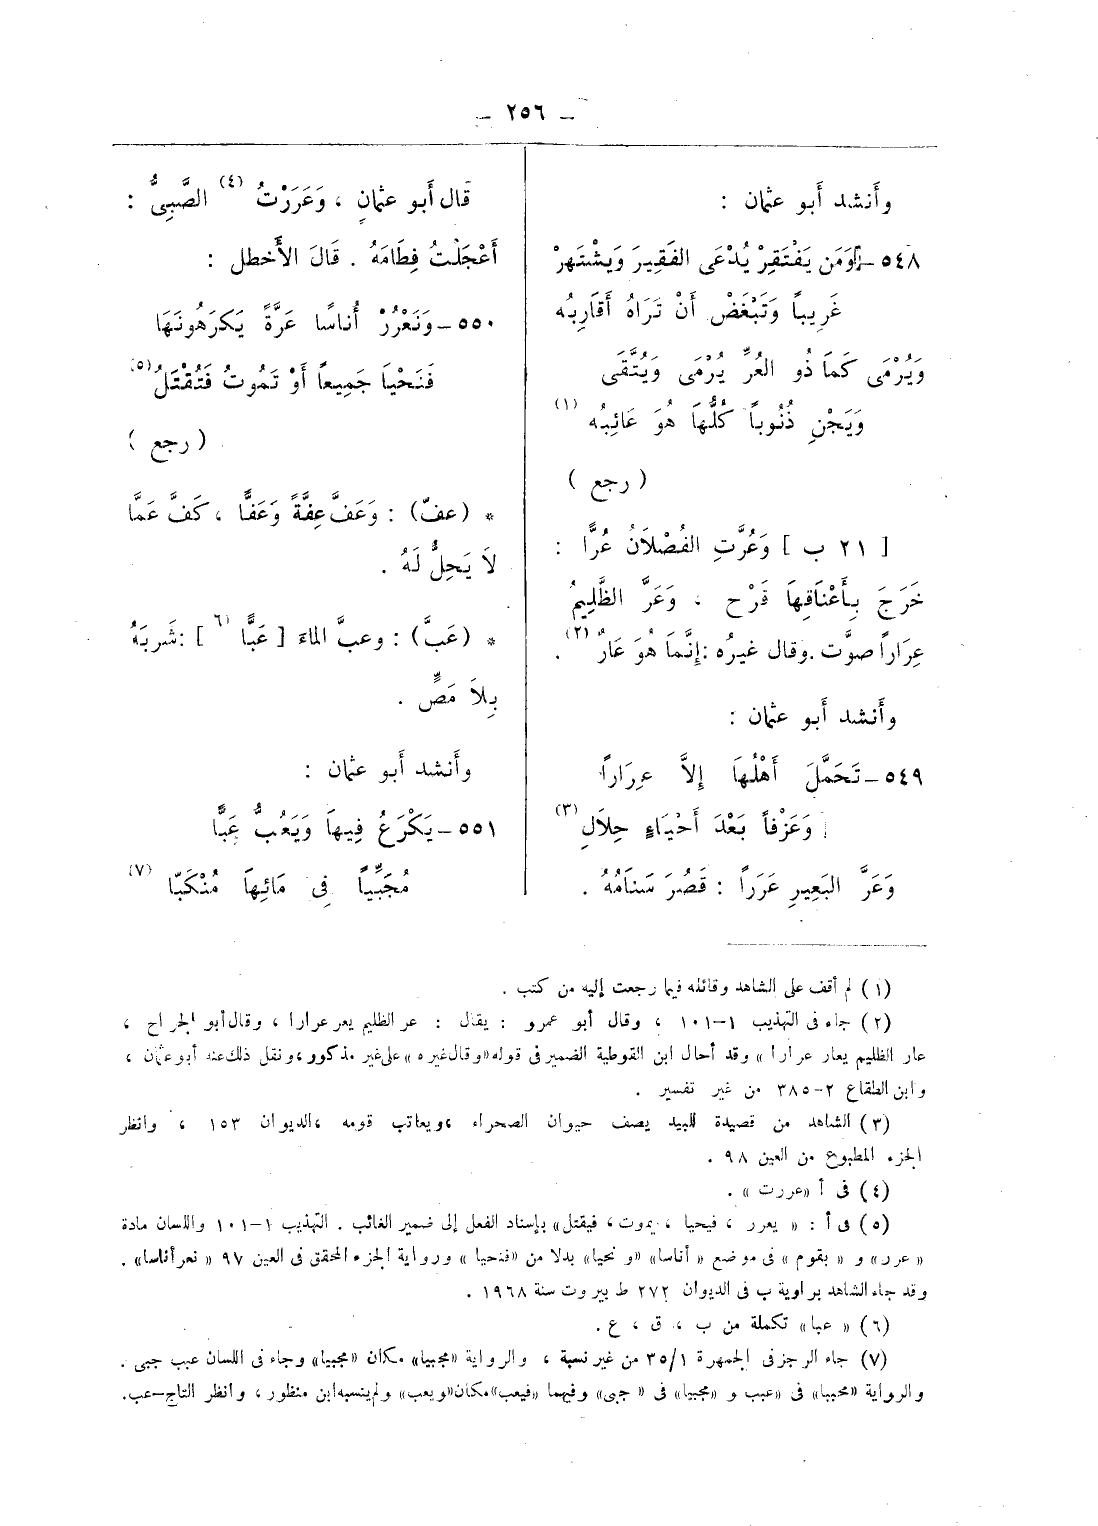 – ٢٥٦ –
وأَنشد أَبو عثمان :
٥٤٨ – وَمَن يَفْتَقِرْ يُدْعَى الفَقِيرَ وَيَشْتَهِرْ
غَرِيباً وَتَبْغَضْ أَنْ تَرَاهُ أَقَارِبُه
وَيُرْمَى كَمَا ذُو العُرِّ يُرْمَى وَيُتَّقَى
وَيَجْنِ ذُنُوباً كُلُّهَا هُوَ عَائِبُه (١)
( رجع )
[ ٢١ ب ] وَعُرَّتِ الفُصْلَانُ عُرًّا :
خَرَجَ بِأَعْنَاقِهَا قَرْح ، وَعَرَّ الظَّلِيمُ
عِرَاراً صوَّت . وقال غيرُه : إِنَّمَا هُوَ عَارَّ (٢) .
وأَنشد أَبو عثمان :
٥٤٩ – تَحَمَّلَ أَهْلُهَا إِلاَّ عِرَاراً
وَعَزْفاً بَعْدَ أَحْيَاءٍ حِلَالِ (٣)
وَعَرَّ البَعِيرِ عَرَراً : قَصُرَ سَنَامُهُ .
قال أَبو عثمانٍ ، وَعَرَرْتُ (٤) الصَّبِيَّ :
أَعْجَلْتُ فِطَامَهُ . قَالَ الأَخطل :
٥٥٠ – وَنَعْرُرْ أُناسًا عَرَّةً يَكرَهُونَهَا
فَنَحْيَا جَمِيعاً أَوْ تَمُوتُ فَتُقْتَلُ (٥)
( رجع )
* (عفّ) : وَعَفَّ عِفَّةً وَعَفًّا ، كَفَّ عَمَّا
لاَ يَحِلُّ لَهُ .
* (عَبَّ) : وعبَّ الماءَ [ عَبًّا (٦) ] : شَرِبَهُ
بِلاَ مَصٍّ .
وأَنشد أَبو عثمان :
٥٥١ – يَكْرَعُ فِيهَا وَيَعُبُّ عَبًّا
مُجَبِّياً فِى مَائِهَا مُنْكَبّا (٧)
(١) لم أقف على الشاهد وقائله فيما رجعت إليه من كتب .
(٢) جاء فى التهذيب ١–١٠١ ، وقال أبو عمرو : يقال : عر الظليم يعر عرارا ، وقال أبو الجراح ،
عار الظليم يعار عرارا » وقد أحال ابن القوطية الضمير فى قوله «وقال غيره » على غير مذكور ، ونقل ذلك عنه أبو عثمان ،
وابن القطاع ٢–٣٨٥ من غير تفسير .
(٣) الشاهد من قصيدة للبيد يصف حيوان الصحراء ، ويعاتب قومه ، الديوان ١٥٣ ، وانظر
الجزء المطبوع من العين ٩٨ .
(٤) فى أ «عررت » .
(٥) فى أ : « يعرر ، فيحيا ، يموت ، فيقتل» بإسناد الفعل إلى ضمير الغائب . التهذيب ١–١٠١ واللسان مادة
« عرر» و « بقوم » فى موضع « أناسا» «و نحيا» بدلا من «فنحيا » ورواية الجزء المحقق فى العين ٩٧ « نعر أناسا» .
وقد جاء الشاهد براوية ب فى الديوان ٢٧٢ ط بيروت سنة ١٩٦٨ .
(٦) « عبا» تكملة من ب ، ق ، ع .
(٧) جاء الرجز فى الجمهرة ٣٥/١ من غير نسبة ، والرواية «مجبيا» مكان «مجبيا» وجاء فى اللسان عبب جبى .
والرواية «محببا» فى «عبب و «مجبيا» فى « جبى» وفيهما «فيعب» مكان «ويعب» ولم ينسبه ابن منظور ، وانظر التاج–عب.